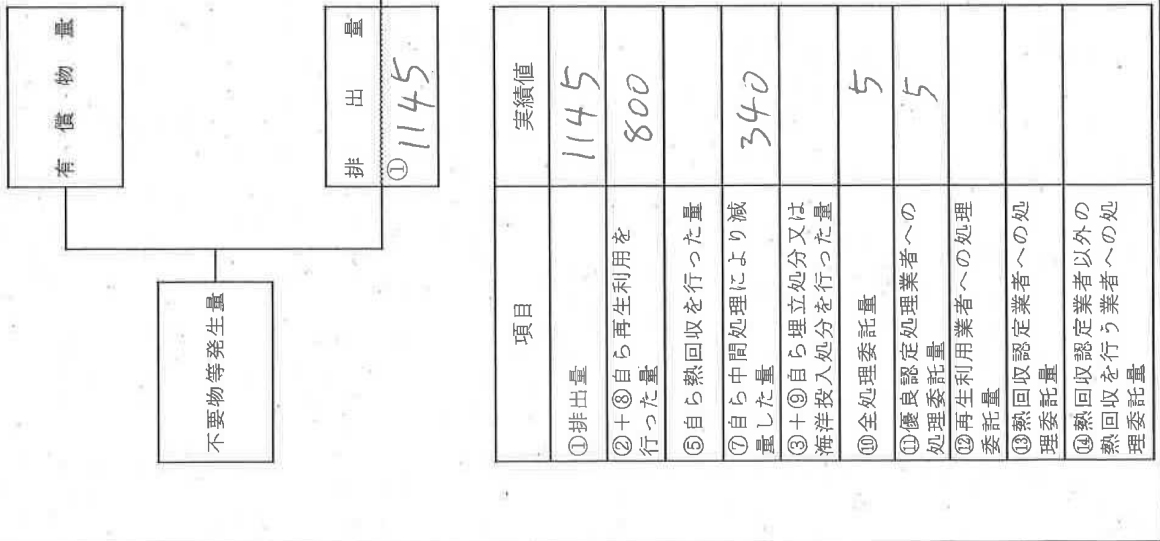 有償物量
不要物等発生量
排出量
①
1145
項目
実績値
①排出量
1145
②+⑧自ら再生利用を
行った量
800
⑤自ら熱回収を行った量
⑦自ら中間処理により減
量した量
340
③+⑨自ら埋立処分又は
海洋投入処分を行った量
⑩全処理委託量
5
⑪優良認定処理業者への
処理委託量
5
⑫再生利用業者への処理
委託量
⑬熱回収認定業者への処
理委託量
⑭熱回収認定業者以外の
熱回収を行う業者への処
理委託量